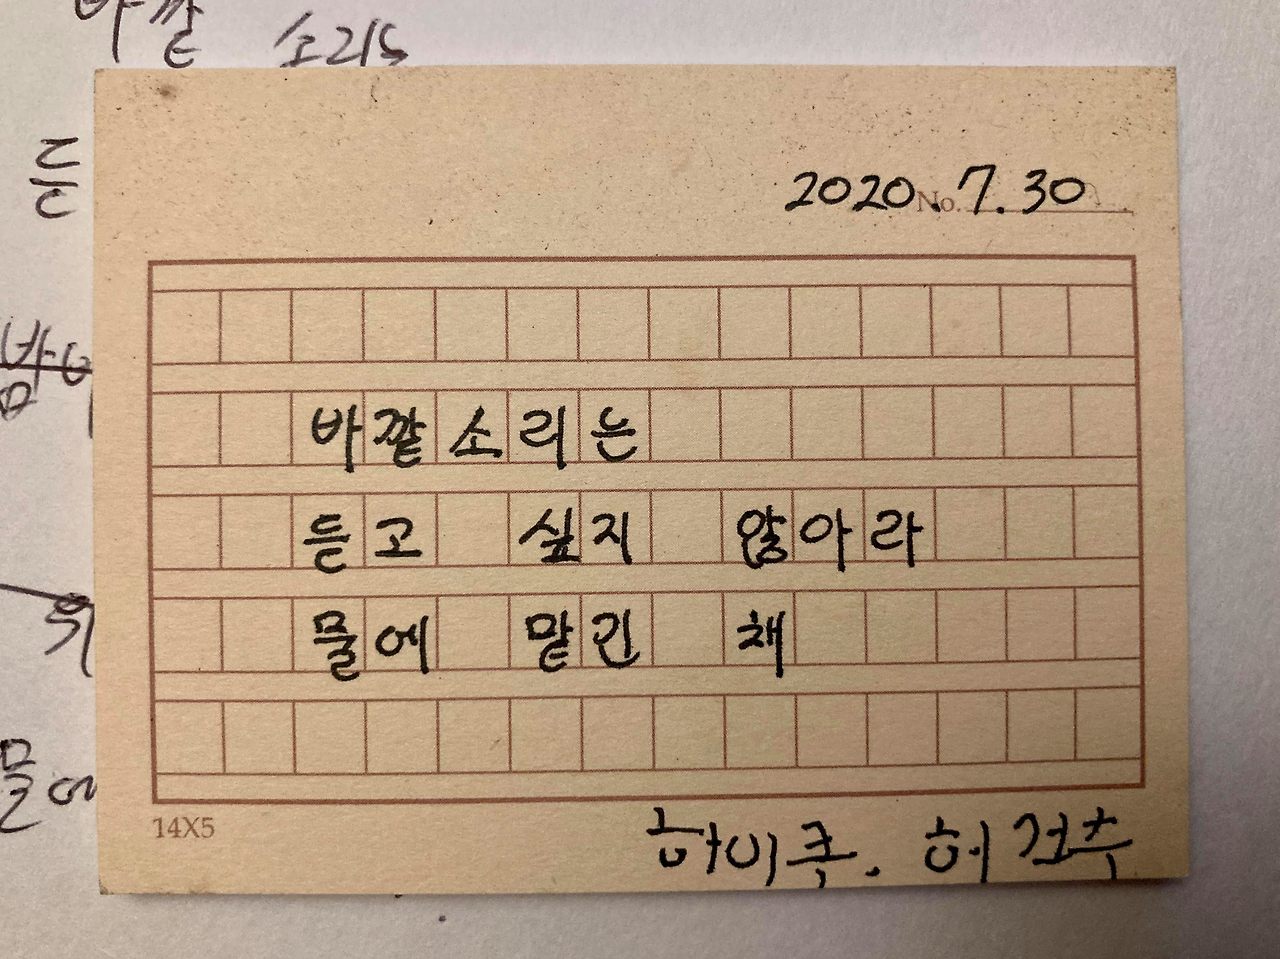 바깥 소리는
2020.7.30
No.
바깥소리는
듣고 싶지 않아라
물에 맡긴 채
14X5
하이쿠. 허건추
물에